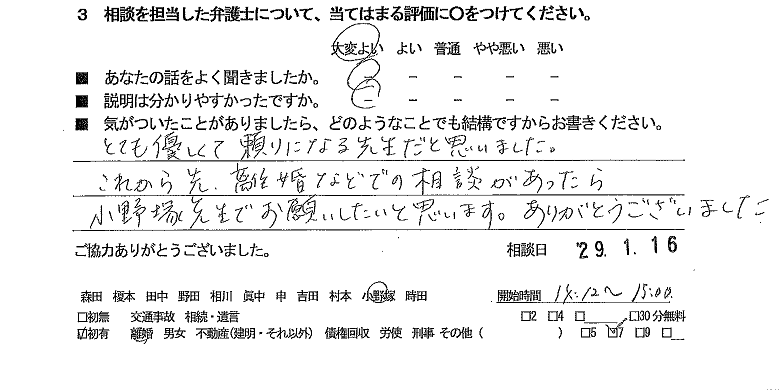 3 相談を担当した弁護士について、当てはまる評価に○をつけてください。
大変よい よい 普通 やや悪い 悪い
■ あなたの話をよく聞きましたか。 － － － － －
■ 説明は分かりやすかったですか。 － － － － －
■ 気がついたことがありましたら、どのようなことでも結構ですからお書きください。
とても優しくて頼りになる先生だと思いました。
これから先、離婚などでの相談があったら
小野塚先生でお願いしたいと思います。ありがとうございました
ご協力ありがとうございました。 相談日 '29.1.16
森田 榎本 田中 野田 相川 眞中 申 吉田 村本 小野塚 時田 開始時間 14:12〜15:00
□初無 交通事故 相続・遺言 □2 □4 □ □30分無料
☑初有 離婚 男女 不動産(建明・それ以外) 債権回収 労使 刑事 その他( ) □5 ☑7 □9 □